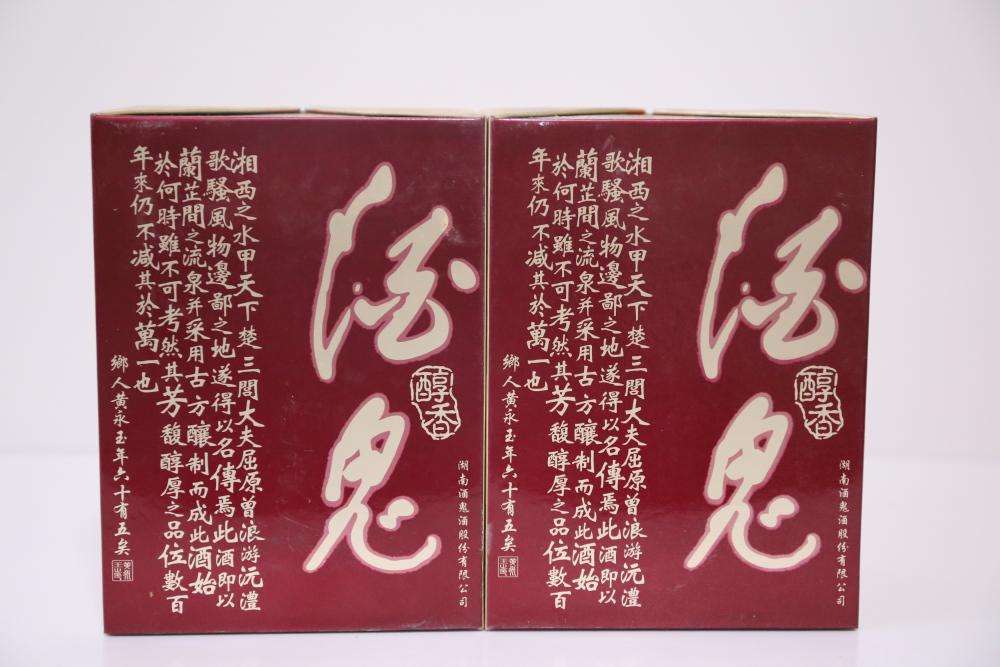 酒鬼
醇香
湖南酒鬼酒股份有限公司
湘西之水甲天下楚三閭大夫屈原曾浪游沅澧
歌騷風物邊鄙之地遂得以名傳焉此酒即以
蘭芷間之流泉并采用古方釀制而成此酒始
於何時雖不可考然其芳馥醇厚之品位數百
年來仍不减其於萬一也
鄉人黄永玉年六十有五矣
酒鬼
醇香
湖南酒鬼酒股份有限公司
湘西之水甲天下楚三閭大夫屈原曾浪游沅澧
歌騷風物邊鄙之地遂得以名傳焉此酒即以
蘭芷間之流泉并采用古方釀制而成此酒始
於何時雖不可考然其芳馥醇厚之品位數百
年來仍不减其於萬一也
鄉人黄永玉年六十有五矣